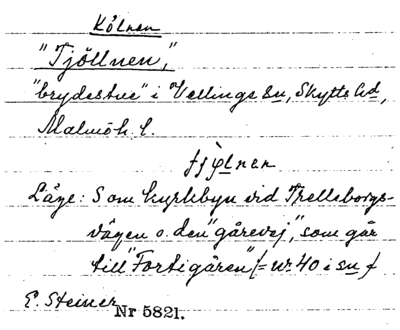 Kölnen
"Tjöllnen,"
"brydestue" i Vellinge sn, Skytts hd,
Malmöh. l.
Läge: S om kyrkbyn vid Trelleborgs-
vägen o. den "gårevej," som går
till "Fortigåren" /= nr 40 i sn /
E. Steiner
Nr 5821.